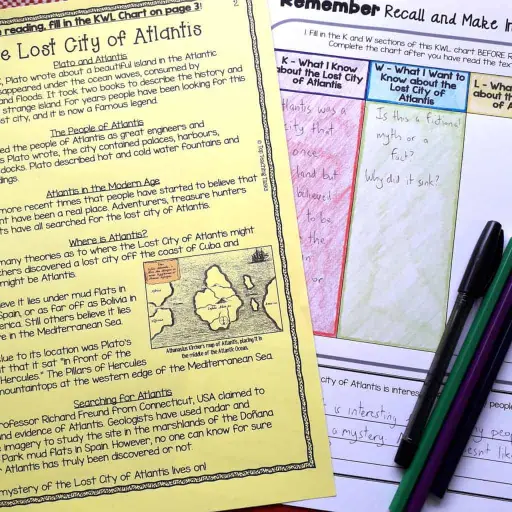 reading, fill in the KWL Chart on page 3!
Lost City of Atlantis
Plato and Atlantis
Plato wrote about a beautiful island in the Atlantic
disappeared under the ocean waves, consumed by
and floods. It took two books to describe the history and
strange island. For years people have been looking for this
city, and it is now a famous legend.
The People of Atlantis
the people of Atlantis as great engineers and
Plato wrote, the city contained palaces, harbours,
docks. Plato described hot and cold water fountains and
Atlantis in the Modern Age
more recent times that people have started to believe that
have been a real place. Adventurers, treasure hunters
have all searched for the lost city of Atlantis.
Where is Atlantis?
many theories as to where the Lost City of Atlantis might
discovered a lost city off the coast of Cuba and
might be Atlantis.
it lies under mud flats in
Spain, or as far off as Bolivia in
Still others believe it lies
in the Mediterranean Sea.
Athanasius Kircher's map of Atlantis, placing it in
the middle of the Atlantic Ocean.
to its location was Plato's
that it sat "in front of the
Hercules." The Pillars of Hercules
mountaintops at the western edge of the Mediterranean Sea.
Searching for Atlantis
Professor Richard Freund from Connecticut, USA claimed to
evidence of Atlantis. Geologists have used radar and
imagery to study the site in the marshlands of the Doñana
Park mud flats in Spain. However, no one can know for sure
Atlantis has truly been discovered or not.
mystery of the Lost City of Atlantis lives on!
Remember Recall and Make
I Fill in the K and W sections of this KWL chart BEFORE
Complete the chart after you have read the
K - What I Know
about the Lost City
of Atlantis
W - What I Want to
Know about the
Lost City of
Atlantis
L - What
about the
of A
Atlantis was a
city that
once
but
believed
to be
the
or
Is this a fictional
myth or a
fact?
Why did it sink?
city of Atlantis is
is interesting
a mystery.
people
doesnt like